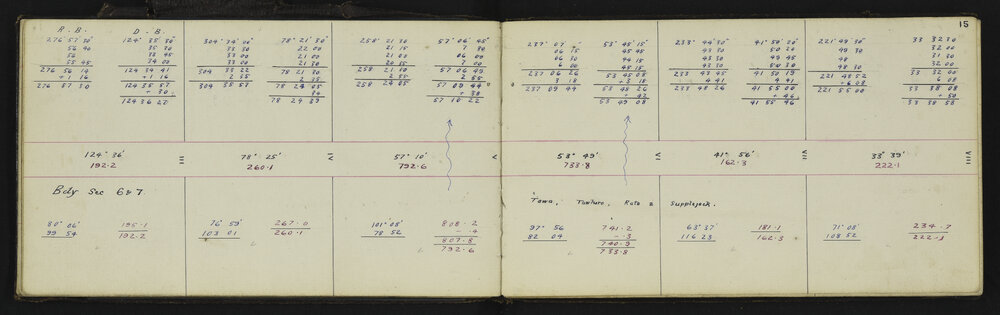 15
R. B. D. B.
276° 57' 30" 124° 35' 30"
56 40 35 30
56 33 45
55 45 34 00
276 56 14 124 34 41
+ 1 16 + 1 16
276 57 30 124 35 57
+ 30
124 36 27
304° 34' 00" 78° 21' 30"
33 30 22 00
33 00 21 00
33 00 21 30
304 33 22 78 21 30
2 35 2 35
304 35 57 78 24 05
34
78 24 39
258° 21 30 57° 06' 45"
21 15 7 30
21 00 06 00
20 15 7 00
258 21 10 57 06 49
2 55 2 55
258 24 05 57 09 44
+ 38
57 10 22
237° 07 53° 45' 15"
06 15 45 45
06 30 44 15
6 00 45 15
237 06 26 53 45 08
3 18 3 18
237 09 44 53 48 26
+ 42
53 49 08
233° 44' 30" 41° 50' 30"
43 30 50 20
43 30 49 45
43 30 50 30
233 43 45 41 50 19
4 41 4 41
233 48 26 41 55 00
+ 46
41 55 46
221° 49' 30" 33 32 30
49 30 32 00
48 31 30
48 30 32 00
221 48 52 33 32 00
+ 6 08 6 08
221 55 00 33 38 08
+ 50
33 38 58
124° 36' III 78° 25' IV 57° 10' V 53° 49' VI 41° 56' VII 33° 39' VIII
192.2 260.1 792.6 733.8 162.3 222.1
Bdy Sec 6 & 7.
Tawa, Tawhero, Rata & Supplejack.
80° 06' 195.1
99 54 192.2
76° 59' 267.0
103 01 260.1
101° 08' 808.2
78 52 - .4
807.8
792.6
97° 56 741.2
82 04 - .3
740.9
733.8
63° 37' 181.1
116 23 162.3
71° 08' 234.7
108 52 222.1